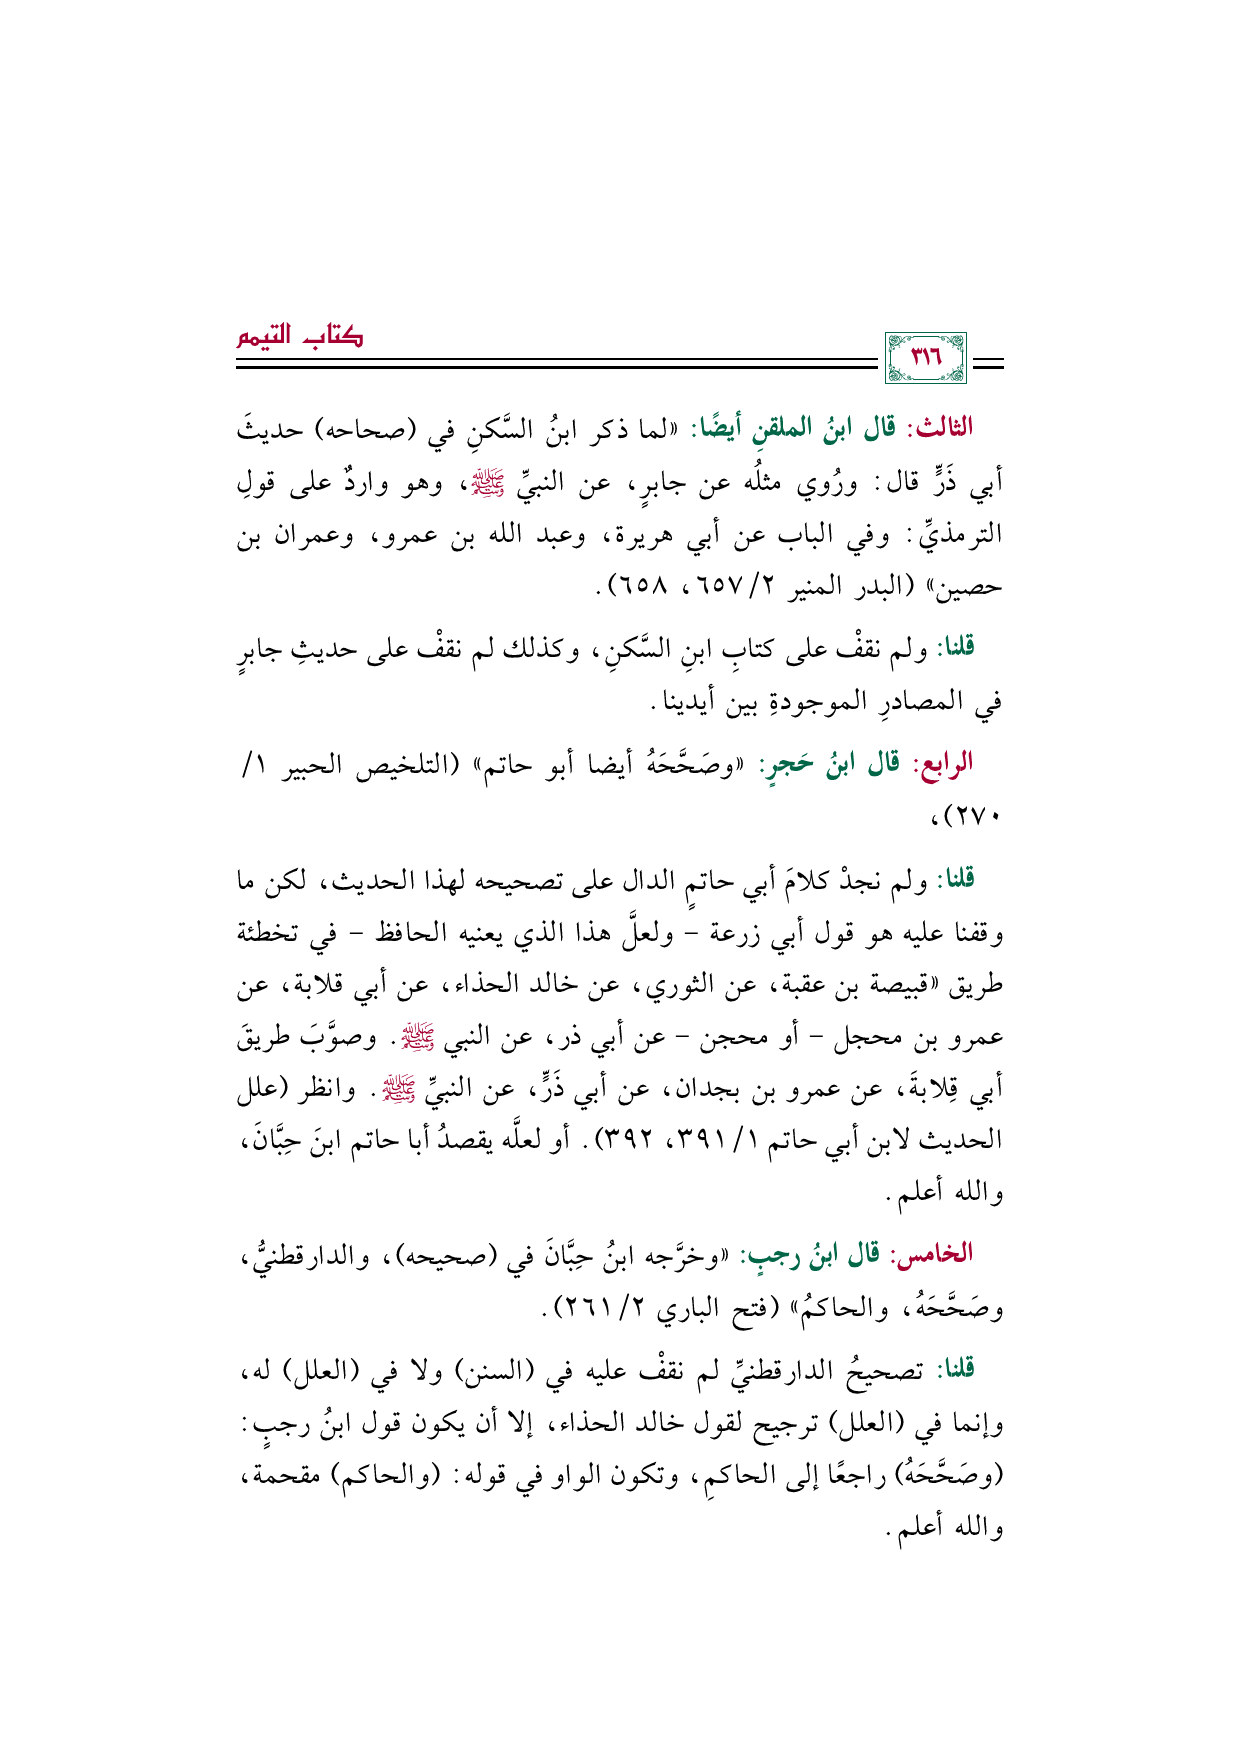 كتاب التيمم
٣١٦
الثالث: قال ابنُ الملقنِ أيضًا: «لما ذكر ابنُ السَّكنِ في (صحاحه) حديثَ
أبي ذَرٍّ قال: ورُوي مثلُه عن جابرٍ، عن النبيِّ ﷺ، وهو واردٌ على قولِ
الترمذيِّ: وفي الباب عن أبي هريرة، وعبد الله بن عمرو، وعمران بن
حصين» (البدر المنير ٢/ ٦٥٧، ٦٥٨).
قلنا: ولم نقفْ على كتابِ ابنِ السَّكنِ، وكذلك لم نقفْ على حديثِ جابرٍ
في المصادرِ الموجودةِ بين أيدينا.
الرابع: قال ابنُ حَجرٍ: «وصَحَّحَهُ أيضا أبو حاتم» (التلخيص الحبير ١/
٢٧٠)،
قلنا: ولم نجدْ كلامَ أبي حاتمٍ الدال على تصحيحه لهذا الحديث، لكن ما
وقفنا عليه هو قول أبي زرعة – ولعلَّ هذا الذي يعنيه الحافظ – في تخطئة
طريق «قبيصة بن عقبة، عن الثوري، عن خالد الحذاء، عن أبي قلابة، عن
عمرو بن محجل – أو محجن – عن أبي ذر، عن النبي ﷺ. وصوَّبَ طريقَ
أبي قِلابةَ، عن عمرو بن بجدان، عن أبي ذَرٍّ، عن النبيِّ ﷺ. وانظر (علل
الحديث لابن أبي حاتم ١/ ٣٩١، ٣٩٢). أو لعلَّه يقصدُ أبا حاتم ابنَ حِبَّانَ،
والله أعلم.
الخامس: قال ابنُ رجبٍ: «وخرَّجه ابنُ حِبَّانَ في (صحيحه)، والدارقطنيُّ،
وصَحَّحَهُ، والحاكمُ» (فتح الباري ٢/ ٢٦١).
قلنا: تصحيحُ الدارقطنيِّ لم نقفْ عليه في (السنن) ولا في (العلل) له،
وإنما في (العلل) ترجيح لقول خالد الحذاء، إلا أن يكون قول ابنُ رجبٍ:
(وصَحَّحَهُ) راجعًا إلى الحاكمِ، وتكون الواو في قوله: (والحاكم) مقحمة،
والله أعلم.